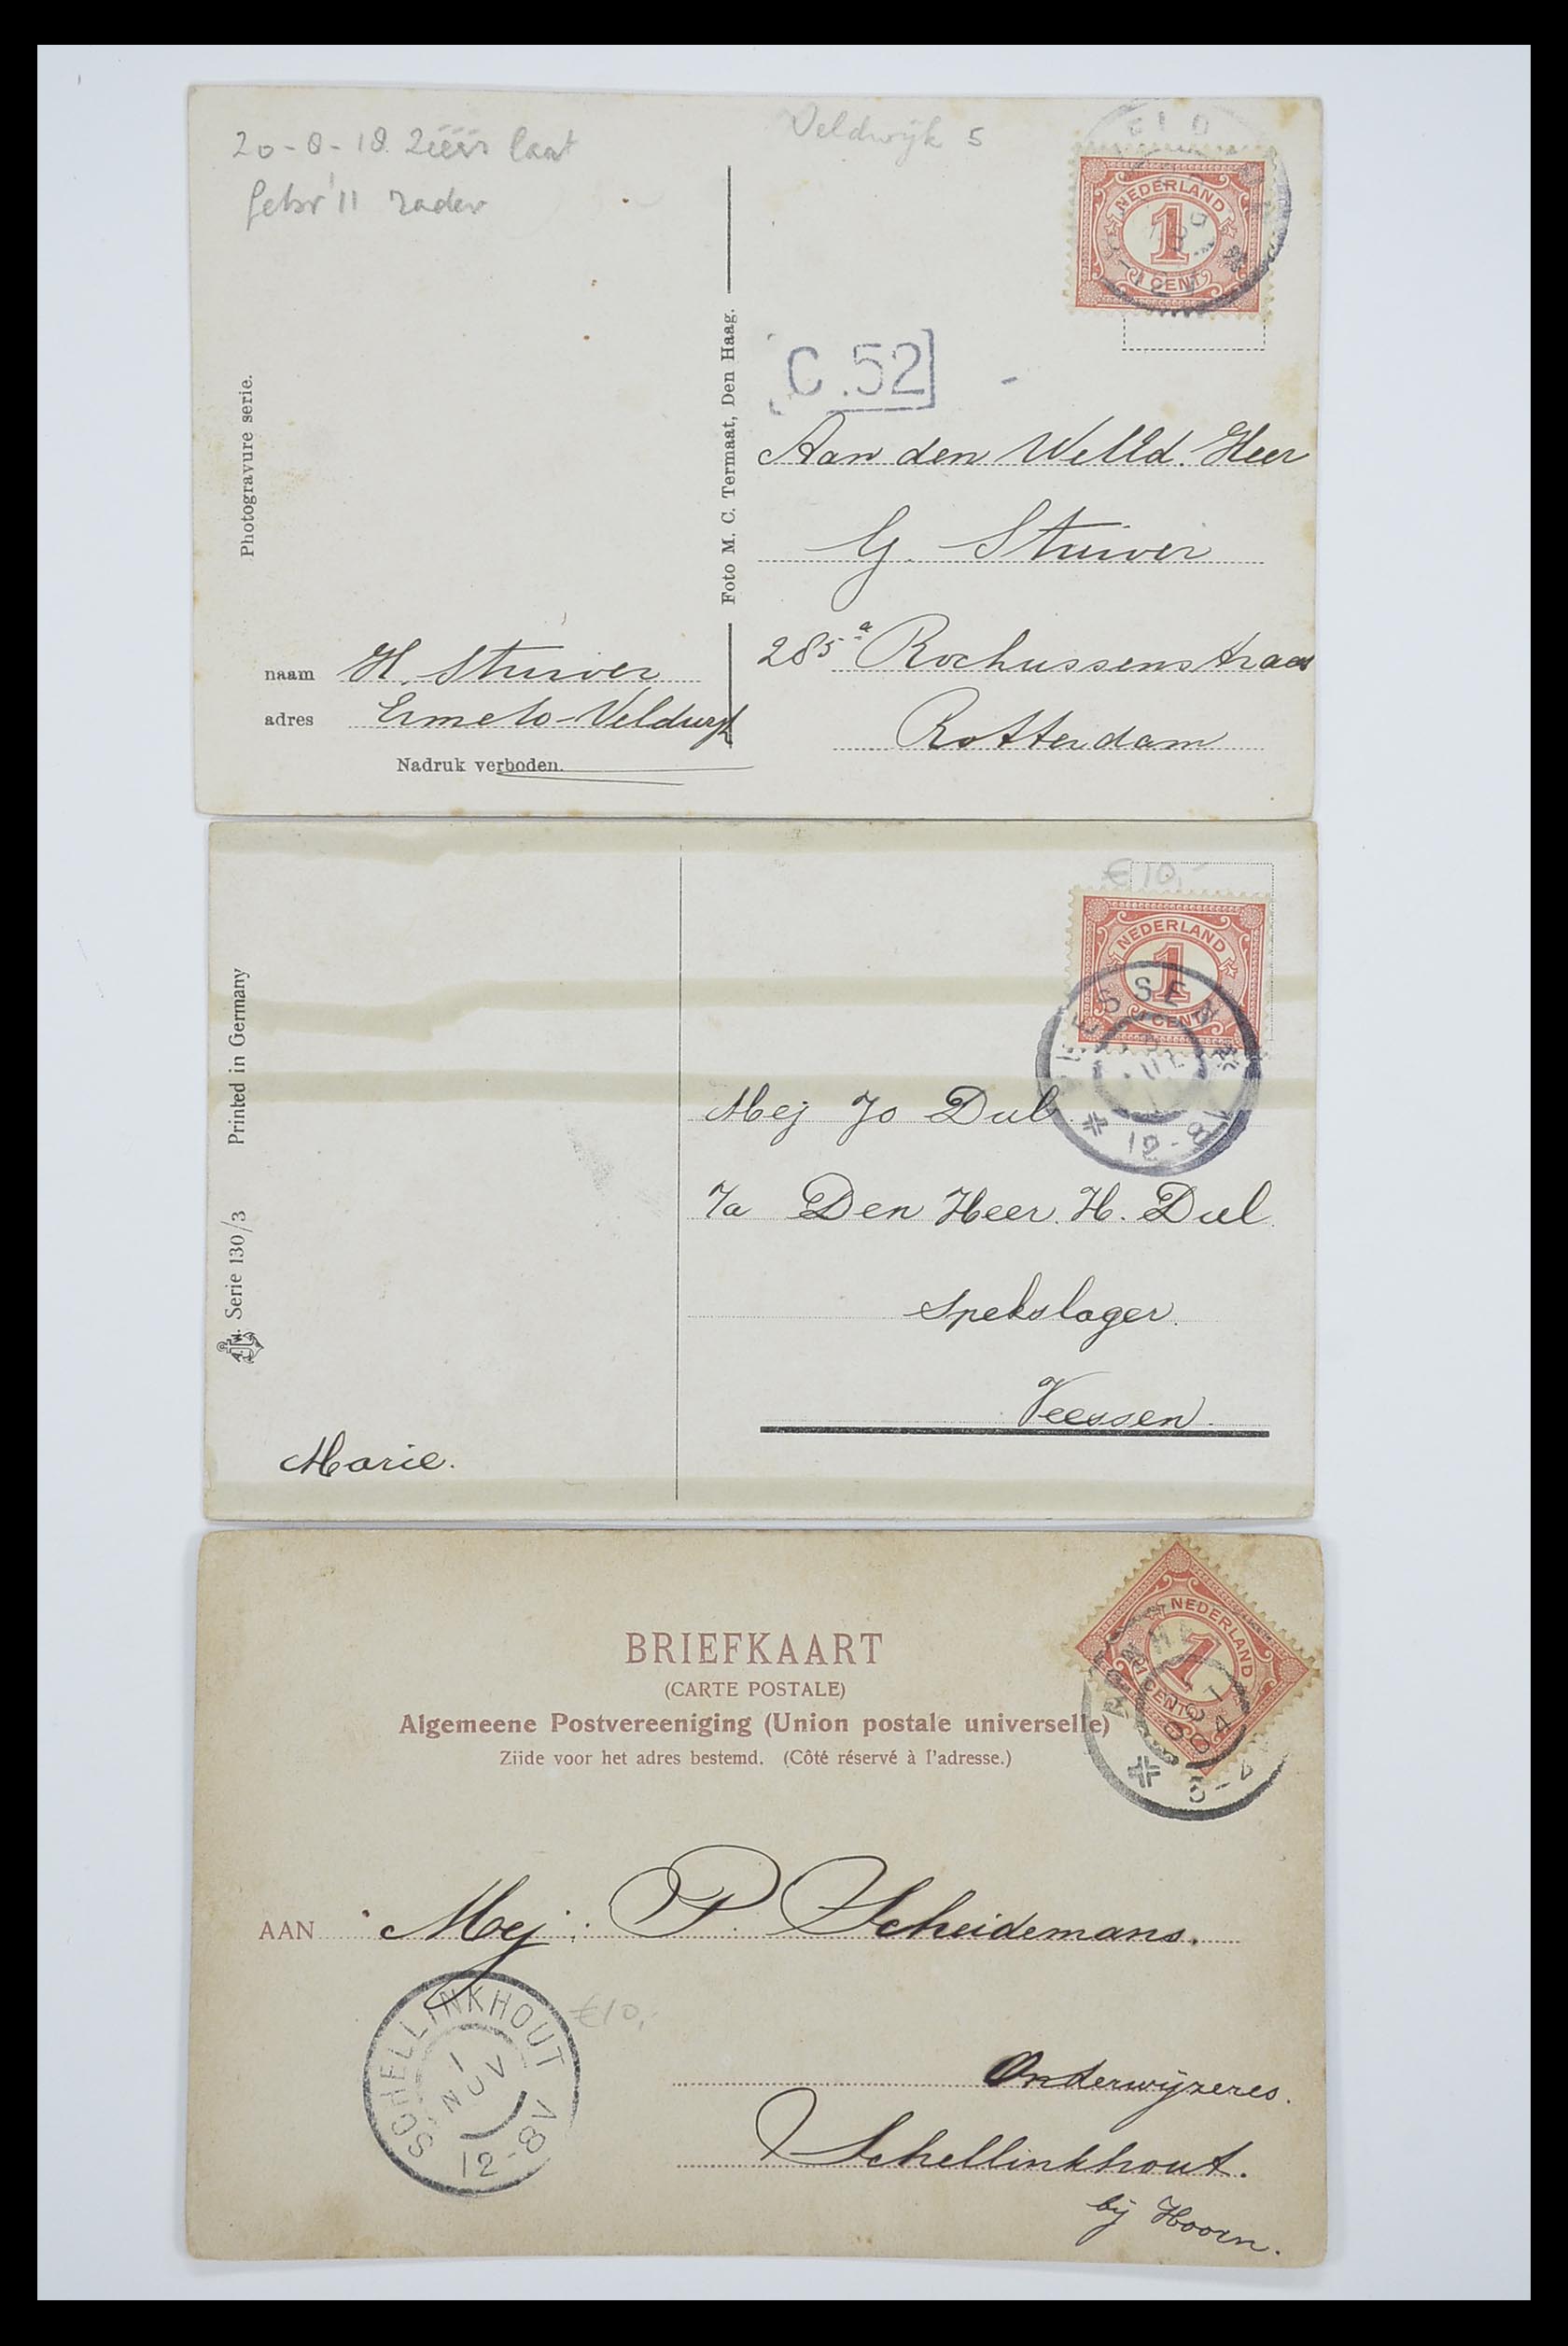 20-8-18 zéér laat
gebr '11 zader
Veldwijk 5
NEDERLAND
1
1 CENT
C.52
Photogravure serie.
Foto M. C. Termaat, Den Haag.
Aan den WelEd. Heer
G. Stuiver
285a Rochussenstraat
Rotterdam
naam H. Stuiver
adres Ermelo-Veldwyk
Nadruk verboden.
€10,-
NEDERLAND
1
1 CENT
VEESSEN
12-8V
Printed in Germany
Serie 130/3
A.W.
Mej Jo Dul
7a Den Heer. H. Dul
Spekslager.
Veessen.
Marie.
BRIEFKAART
(CARTE POSTALE)
Algemeene Postvereeniging (Union postale universelle)
Zijde voor het adres bestemd. (Côté réservé à l'adresse.)
NEDERLAND
1
1 CENT
AAN Mej: P. Scheidemans.
SCHELLINKHOUT
1 NOV
12-8V
€10,-
Onderwyzeres.
Schellinkhout.
bij Hoorn.